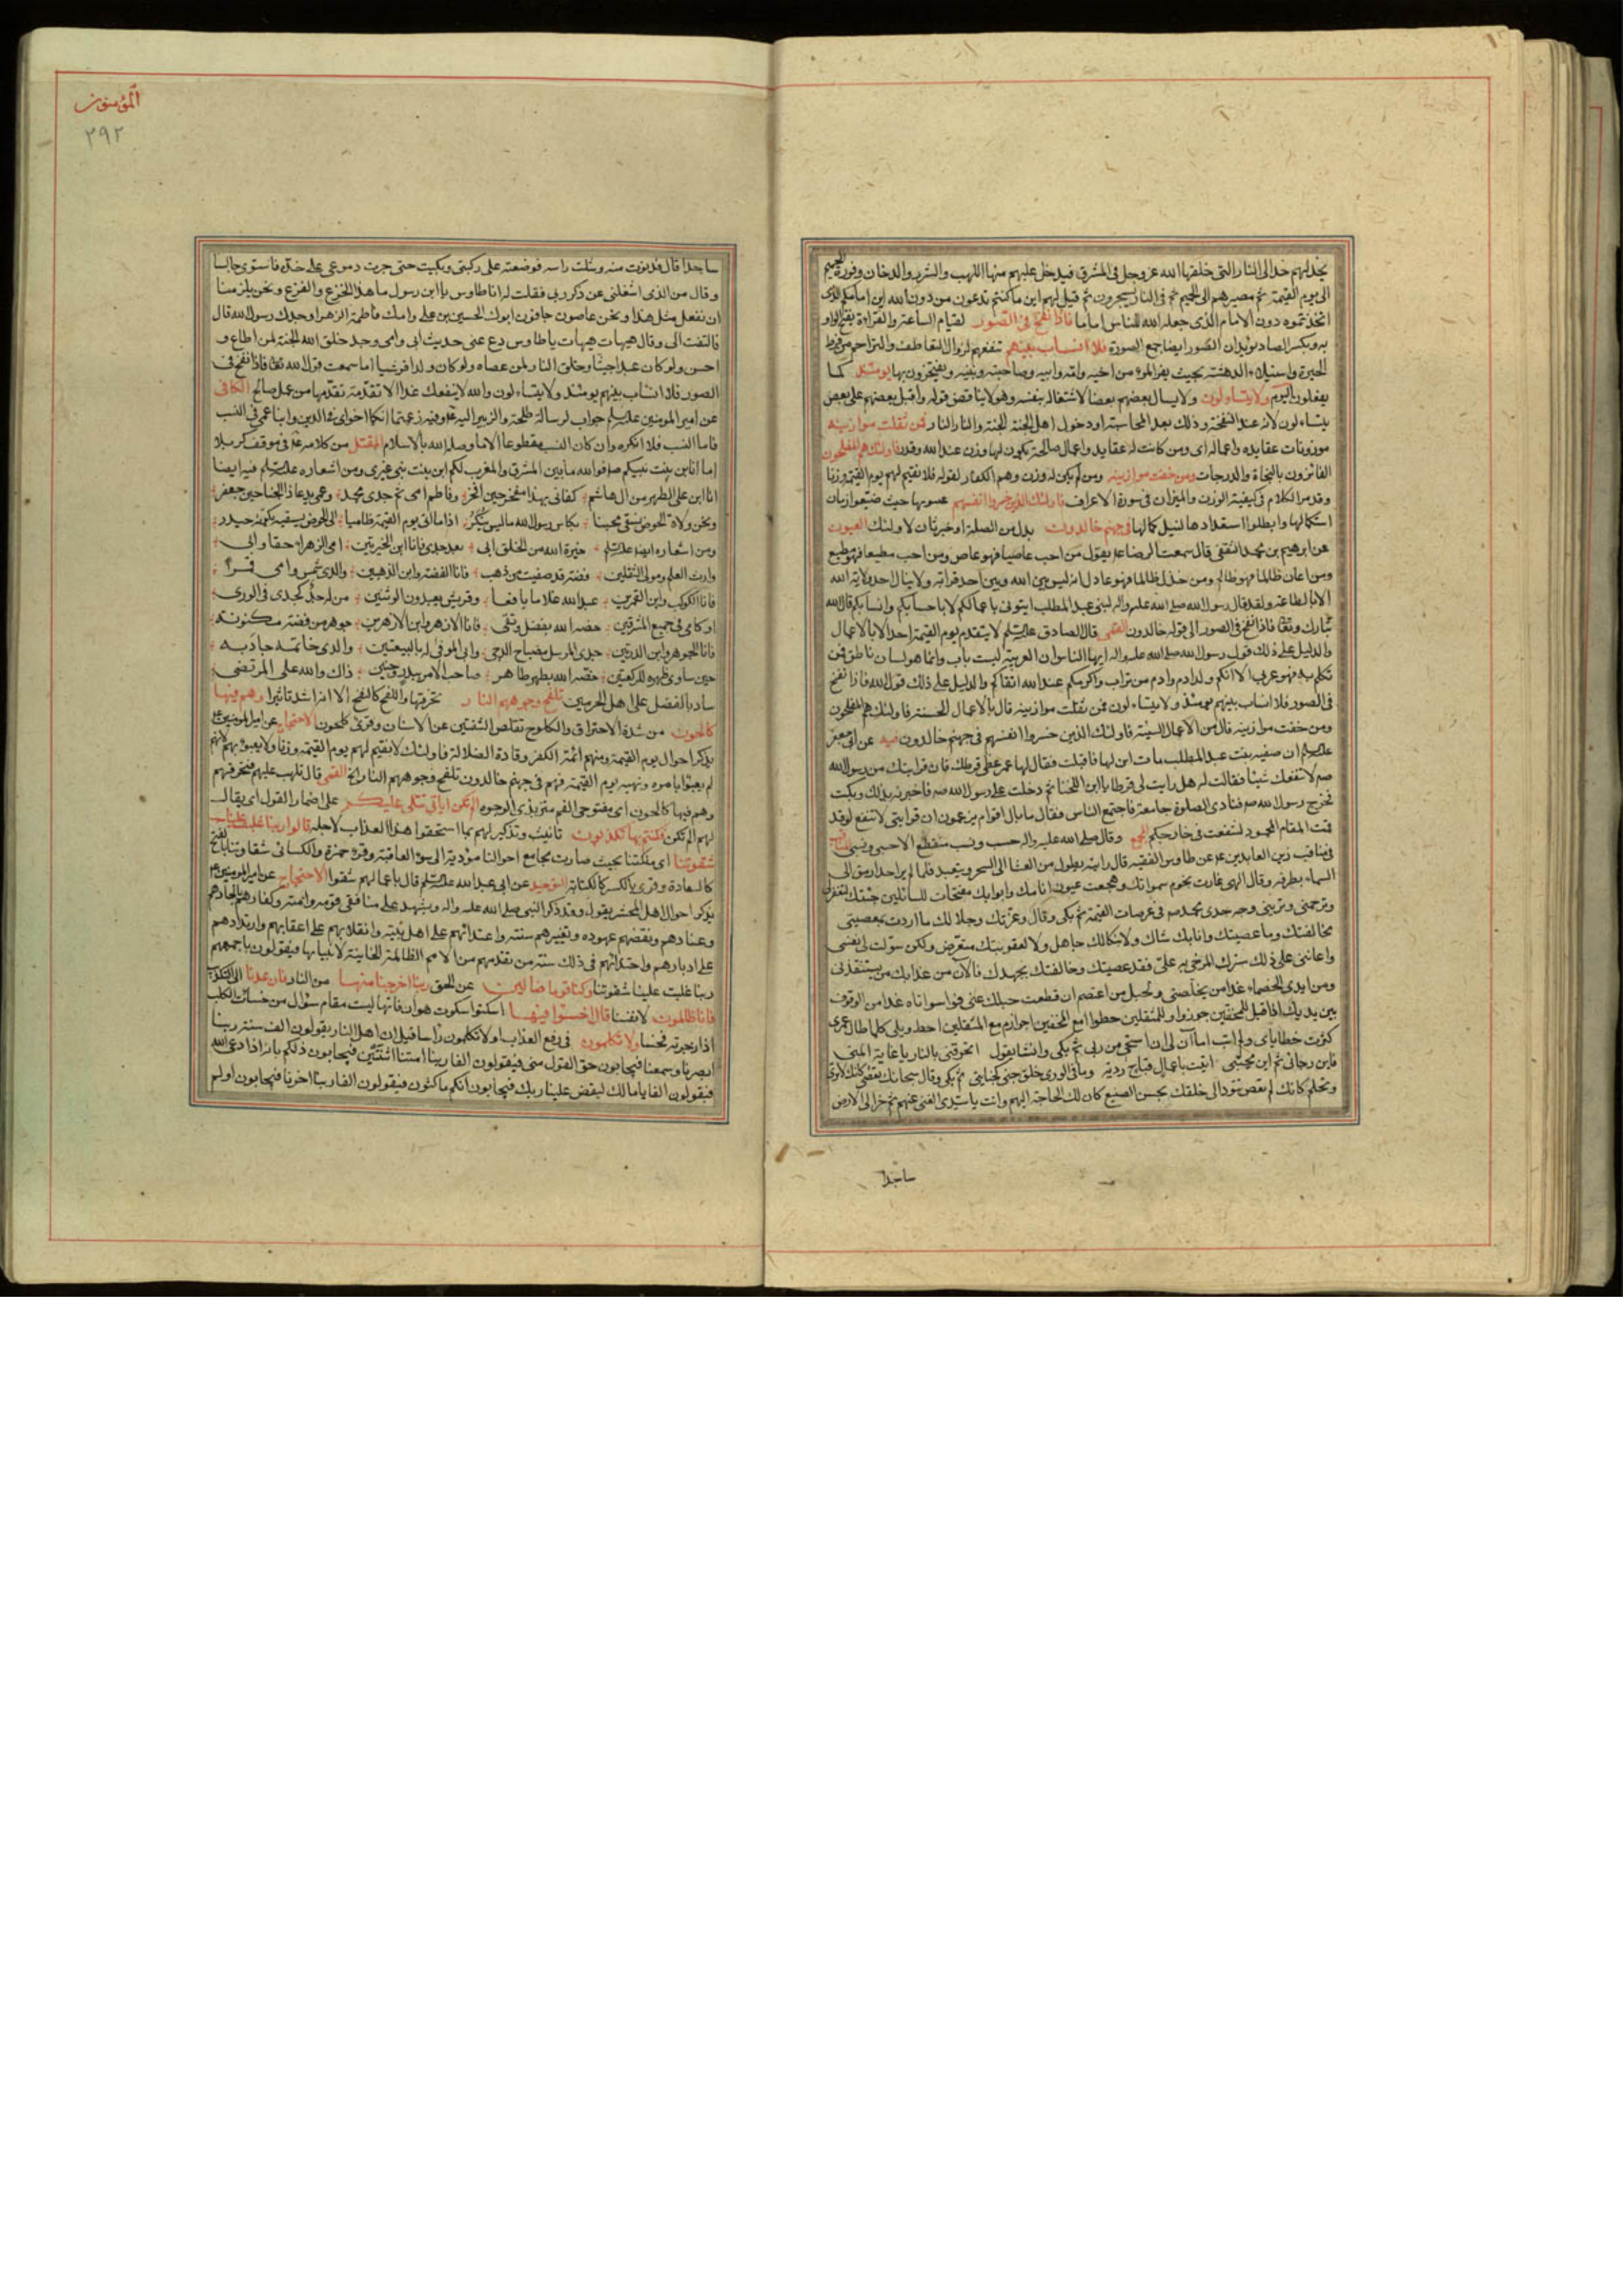 يخد لهم خدا الى النار التى خلقها الله عز وجل فى المشرق فيدخل عليهم منها اللهب والشرر والدخان وفورة الحميم
الى يوم القيمة ثم مصيرهم الى الجحيم ثم فى النار يسجرون ثم قيل لهم اين ما كنتم تدعون من دون الله اين امامكم الذى
اتخذتموه دون الامام الذى جعله الله للناس اماما فاذا نفخ فى الصور لقيام الساعة والقراءة بفتح الواو
به وبكسر الصاد يؤيد ان الصور ايضا جمع الصورة فلا انساب بينهم تنفعهم لزوال التعاطف والتراحم من فرط
الحيرة واستيلاء الدهشة بحيث يفر المرء من اخيه وامه وابيه وصاحبته وبنيه ويفتخرون بها يومئذ كما
يفعلون اليوم ولا يتساءلون ولا يسال بعضهم بعضا لاشتغاله بنفسه وهو لا يناقض قوله واقبل بعضهم على بعض
يتساءلون لانه عند النفخة وذلك بعد المحاسبة او دخول اهل الجنة الجنة والنار النار فمن ثقلت موازينه
موزونات عقايده واعماله اى ومن كانت له عقايد واعمال صالحة يكون لها وزن عند الله وقدر فاولئك هم المفلحون
الفائزون بالنجاة والدرجات ومن خفت موازينه ومن لم يكن له وزن وهم الكفار لقوله فلا نقيم لهم يوم القيمة وزنا
وقد مر الكلام فى كيفية الوزن والميزان فى سورة الاعراف فاولئك الذين خسروا انفسهم غبنوها حيث ضيعوا زمان
استكمالها وابطلوا استعدادها لنيل كمالها فى جهنم خالدون بدل من الصلة او خبر ثان لاولئك العيون
عن ابرهيم بن محمد الثقفى قال سمعت الرضا ع يقول من احب عاصيا فهو عاص ومن احب مطيعا فهو مطيع
ومن اعان ظالما فهو ظالم ومن خذل ظالما فهو عادل انه ليس بين الله وبين احد قرابة ولا ينال احد ولاية الله
الا بالطاعة ولقد قال رسول الله صلى الله عليه واله لبنى عبد المطلب ايتونى باعمالكم لا باحسابكم وانسابكم قال الله
تبارك وتعالى فاذا نفخ فى الصور الى قوله خالدون القمى قال الصادق عليه السلم لا يتقدم يوم القيمة احد الا بالاعمال
والدليل على ذلك قول رسول الله صلى الله عليه واله ايها الناس ان العربية ليست باب وانما هو لسان ناطق فمن
تكلم به فهو عربى الا انكم ولد ادم وادم من تراب واكرمكم عند الله اتقاكم والدليل على ذلك قول الله فاذا نفخ
فى الصور فلا انساب بينهم يومئذ ولا يتساءلون فمن ثقلت موازينه قال بالاعمال الحسنة فاولئك هم المفلحون
ومن خفت موازينه قال من الاعمال السيئة فاولئك الذين خسروا انفسهم فى جهنم خالدون عن ابى جعفر
عليه السلم ان صفيه بنت عبد المطلب مات ابن لها فاقبلت فقال لها عمر غطى قرطك فان قرابتك من رسول الله
صم لا تنفعك شيئا فقالت له هل رايت لى قرطا يا ابن اللخناء ثم دخلت على رسول الله صم فاخبرته بذلك وبكت
فخرج رسول الله صم فنادى الصلوة جامعة فاجتمع الناس فقال ما بال اقوام يزعمون ان قرابتى لا تنفع لو قد
قمت المقام المحمود لشفعت فى خارجكم المجمع وقال صلى الله عليه واله كل حسب ونسب منقطع الا حسبى ونسبى
فى مناقب زين العابدين ع عن طاوس الفقيه قال رايته يطوف من العشا الى السحر ويتعبد فلما لم ير احدا رمق الى
السماء بطرفه وقال الهى غارت نجوم سمواتك وهجعت عيون انامك وابوابك مفتحات للسائلين جئتك لتغفر لى
وترحمنى وترينى وجه جدى محمد صم فى عرصات القيمة ثم بكى وقال وعزتك وجلالك ما اردت بمعصيتى
مخالفتك وما عصيتك وانا بك شاك ولا بنكالك جاهل ولا لعقوبتك متعرض ولكن سولت لى نفسى
واعاننى على ذلك سترك المرخى به على فقد عصيتك وخالفتك بجهدك فالآن من عذابك من يستنقذنى
ومن ايدى الخصماء غدا من يخلصنى وبحبل من اعتصم ان قطعت حبلك عنى فواسواتاه غدا من الوقوف
بين يديك اذا قيل للمخفين جوزوا وللمثقلين حطوا امع المخفين اجوز ام مع المثقلين احط ويلى كلما طال عمرى
كثرت خطاياى ولم اتب اما آن لى ان استحى من ربى ثم بكى وانشا يقول اتحرقنى بالنار يا غاية المنى
فاين رجائى ثم اين محبتى اتيت باعمال قباح ردية وما فى الورى خلق جنى كجنايتى ثم بكى وقال سبحانك تعصى كانك لا ترى
وتحلم كانك لم تعص تتودد الى خلقك بحسن الصنيع كان لك الحاجة اليهم وانت يا سيدى الغنى عنهم ثم خر الى الارض
ساجدا
المؤمنون
٢٩٢
ساجدا قال فدنوت منه وشلت راسه فوضعته على ركبتى وبكيت حتى جرت دموعى على خده فاستوى جالسا
وقال من الذى اشغلنى عن ذكر ربى فقلت له انا طاوس يا ابن رسول ما هذا الجزع والفزع ونحن يلزمنا
ان نفعل مثل هذا ونحن عاصون جافون ابوك الحسين بن على وامك فاطمة الزهرا وجدك رسول الله قال
فالتفت الى وقال هيهات هيهات يا طاوس دع عنى حديث ابى وامى وجد خلق الله الجنة لمن اطاع و
احسن ولو كان عبدا حبشيا وخلق النار لمن عصاه ولو كان ولدا قرشيا اما سمعت قول الله تعالى فاذا نفخ فى
الصور فلا انساب بينهم يومئذ ولا يتساءلون والله لا ينفعك غدا الا تقدمة تقدمها من عمل صالح الكافى
عن امير المومنين عليه السلم جواب لرسالة طلحة والزبير اليه وفيه زعمتما انكما اخواى فى الدين وابنا عمى فى النسب
فاما النسب فلا انكره وان كان النسب مقطوعا الا ما وصله الله بالاسلام المقتل من كلامه ع فى موقف كربلا
اما انا ابن بنت نبيكم صم فوالله ما بين المشرق والمغرب لكم ابن بنت نبى غيرى ومن اشعاره عليه السلم فيه ايضا
انا ابن على الطهر من آل هاشم كفانى بهذا مفخر حين افخر وفاطم امى ثم جدى محمد وعمى يدعا ذا الجناحين جعفر
ونحن ولاة الحوض نسقى محبنا بكاس رسول الله ما ليس ينكر اذا ما اتى يوم القيمة ظاميا الى الحوض يسقيه بكفيه حيدر
ومن اشعاره ايضا عليه السلم خيرة الله من الخلق ابى بعد جدى فانا ابن الخيرتين امى الزهراء حقا وابى
وارث العلم ومولى الثقلين فضة قد صفيت من ذهب فانا الفضة وابن الذهبين والدى شمس وامى قمر
فانا الكوكب وابن القمرين عبد الله غلاما يافعا وقريش يعبدون الوثنين من له جد كجدى فى الورى
او كامى فى جميع المشرقين خصه الله بفضل وتقى فانا الازهر وابن الازهرين جوهر من فضة مكنونة
فانا الجوهر وابن الدرتين جدى المرسل مصباح الدجى وابى الموفى له بالبيعتين والدى خاتمه جاد به
حين ساوى ظهره للركعتين خصه الله بطهر طاهر صاحب الامر ببدر وحنين ذاك والله على المرتضى
ساد بالفضل على اهل الحرمين تلفح وجوههم النار تحرقها واللفح كالنفح الا انه اشد تاثيرا وهم فيها
كالحون من شدة الاحتراق والكلوح تقلص الشفتين عن الاسنان وقرئ كلحون الاحتجاج عن امير المومنين ع
يذكر احوال يوم القيمة ومنهم ائمة الكفر وقادة الضلالة فاولئك لا نقيم لهم يوم القيمة وزنا ولا يعبؤ بهم لانهم
لم يعبئوا بامره ونهيه يوم القيمة فهم فى جهنم خالدون تلفح وجوههم النار القمى قال تلهب عليهم فتحرقهم
وهم فيها كالحون اى مفتوحى الفم متربدى الوجوه الم تكن آياتى تتلى عليكم على اضمار القول اى يقال
لهم الم تكن فكنتم بها تكذبون تانيث وتذكير لهم بما استحقوا هذا العذاب لاجله قالوا ربنا غلبت علينا
شقوتنا اى ملكتنا بحيث صارت مجامع احوالنا مؤدية الى سوء العاقبة وقرء حمزة والكسائى شقاوتنا بالفتح
كالسعادة وقرئ بالكسر كالكتابة التوحيد عن ابى عبد الله عليه السلم قال باعمالهم شقوا الاحتجاج عن امير المومنين ع
يذكر احوال اهل المحشر يقول وقد ذكر النبى صلى الله عليه واله ويشهد على منافقى قومه وامته وكفارهم بالحادهم
وعنادهم ونقضهم عهوده وتغييرهم سنته واعتدائهم على اهل بيته وانقلابهم على اعقابهم وارتدادهم
على ادبارهم واحتذائهم فى ذلك سنة من تقدمهم من الامم الظالمة الخاينة لانبيائها فيقولون باجمعهم
ربنا غلبت علينا شقوتنا وكنا قوما ضالين عن الحق ربنا اخرجنا منها من النار فان عدنا الى التكذيب
فانا ظالمون لانفسنا قال اخسئوا فيها اسكتوا سكوت هوان فانها ليست مقام سؤال من خسات الكلب
اذا زجرته فخسا ولا تكلمون فى رفع العذاب او لا تكلمون راسا قيل ان اهل النار يقولون الف سنة ربنا
ابصرنا وسمعنا فيجابون حق القول منى فيقولون الفا ربنا امتنا اثنتين فيجابون ذلكم بانه اذا دعى الله
فيقولون الفا يا مالك ليقض علينا ربك فيجابون انكم ماكثون فيقولون الفا ربنا اخرنا فيجابون اولم